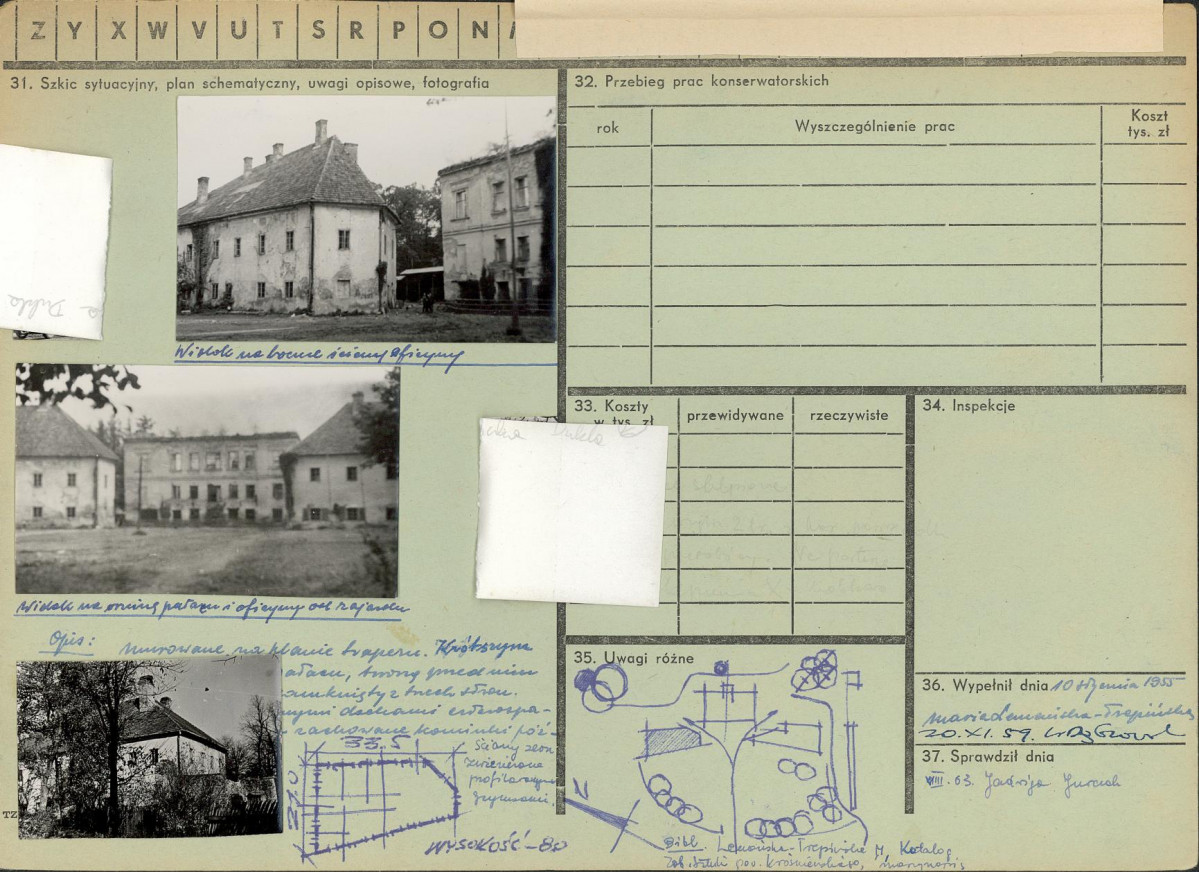 Z Y X W V U T S R P O N
31. Szkic sytuacyjny, plan schematyczny, uwagi opisowe, fotografia
Widok na boczne ściany oficyny
Widok na ruinę pałacu i oficyny od zajazdu
Opis: murowane, na planie trapezu. Krótszym
pałacu, tworzą przed nim
zamknięty z trzech stron.
nymi dachami czterospa-
zachowane kominki póź-
Ściany zewn.
zwieńczone
profilowanym
gzymsami.
33,5
27,0
WYSOKOŚĆ - 8,0
TZ
Dukla
Dukla
32. Przebieg prac konserwatorskich
rok
Wyszczególnienie prac
Koszt
tys. zł
33. Koszty
w tys. zł
przewidywane
rzeczywiste
34. Inspekcje
35. Uwagi różne
Bibl. Lemańska-Trepińska M, Katalog
Zab. sztuki pow. krośnieńskiego, maszynopis
36. Wypełnił dnia 10 stycznia 1955
Maria Lemańska-Trepińska
20.XI.59.
37. Sprawdził dnia
VIII.63. Jadwiga